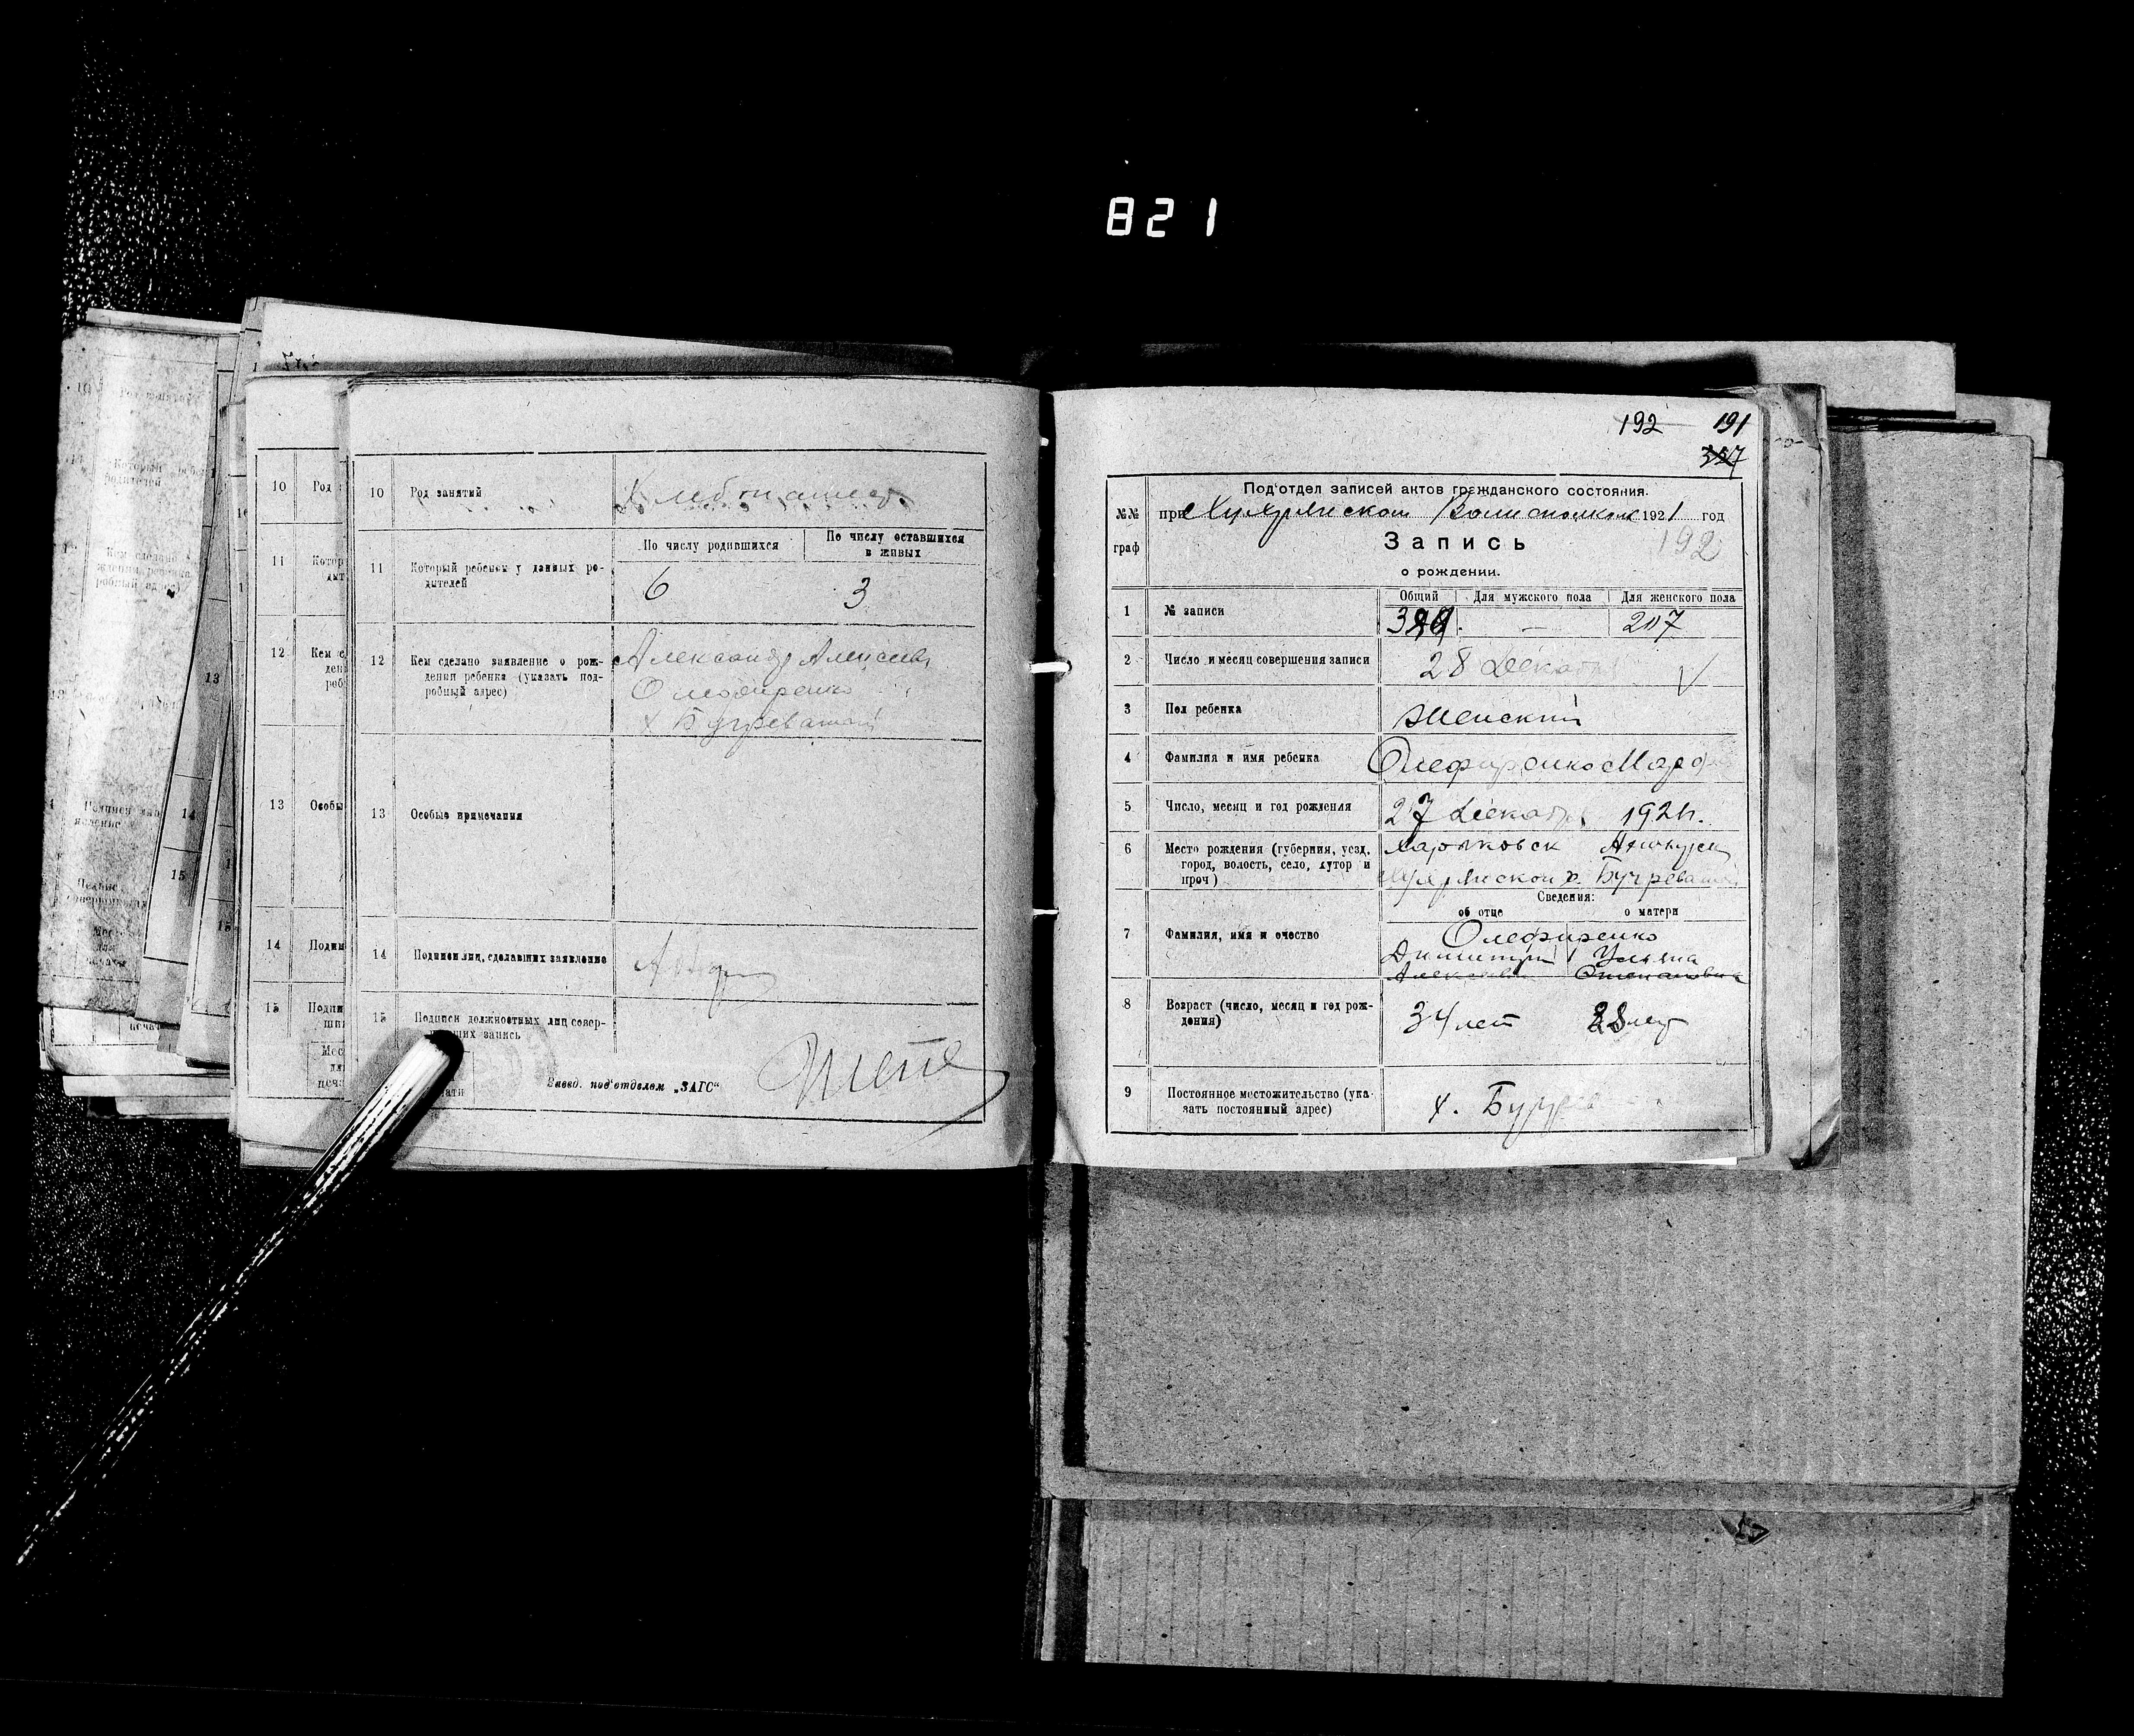 821
10 Род занятий
11 Который ребенок у данных ро-
дителей
По числу родившихся
По числу оставшихся
в живых
6
3
12 Кем сделано заявление о рож-
дения ребенка (указать под-
робный адрес)
Александр Алексеев
Олефиренко
х Бугреватый
13 Особые примечания
14 Подписи лиц, сделавших заявление
15 Подписи должностных лиц совер-
шивших запись
Завед. под'отделом „ЗАГС“
192 191
337
Под'отдел записей актов гражданского состояния.
№№
граф
при Волисполкоме 1921 год
Запись
192
о рождении.
1 № записи
Общий
Для мужского пола
Для женского пола
— 207
2 Число и месяц совершения записи
28 Декабр
3 Пол ребенка
Женский
4 Фамилия и имя ребенка
Олефиренко Марфа
5 Число, месяц и год рождения
27 Декабр 1921г.
6 Место рождения (губерния, уезд,
город, волость, село, хутор и
проч)
Харьковск Ахтырск
х. Бугреват
Сведения:
об отце
о матери
7 Фамилия, имя и очество
Олефиренко
Димитрий Ульяна
Алексеев Степановна
8 Возраст (число, месяц и год рож-
дения)
34 лет
28 лет
9 Постоянное местожительство (ука-
зать постоянный адрес)
х. Бугрев